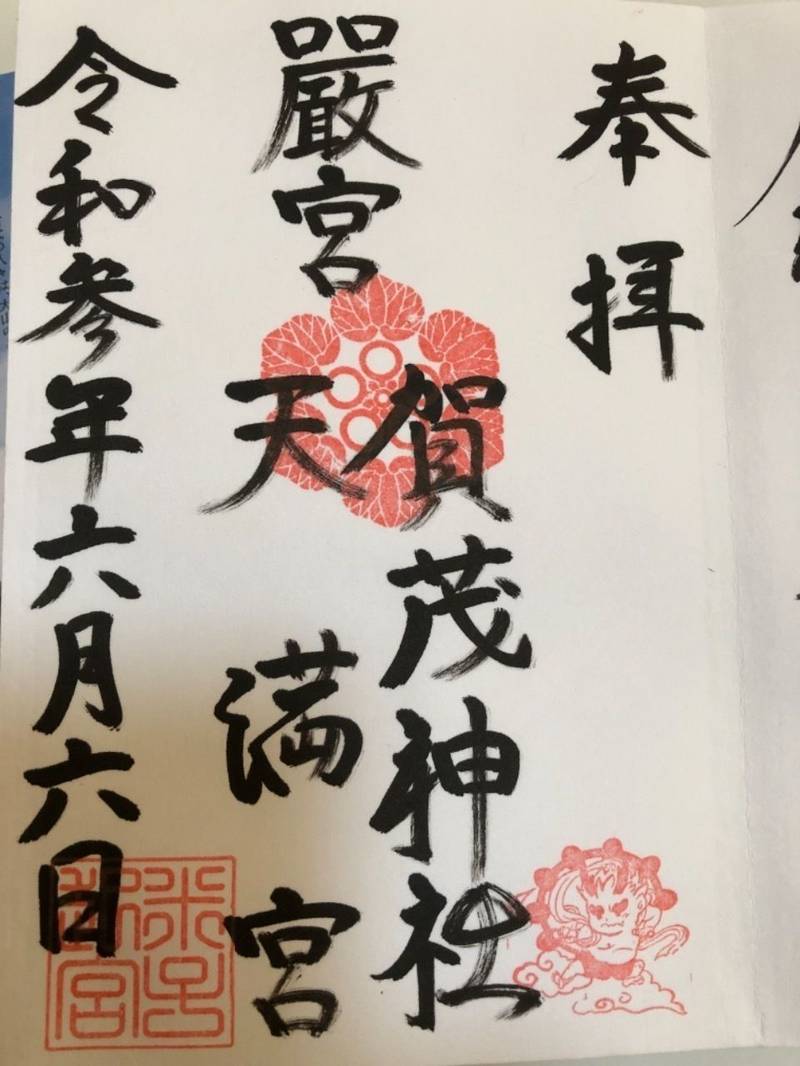 奉拝
嚴宮
賀茂神社
天満宮
令和参年六月六日
米子
宮